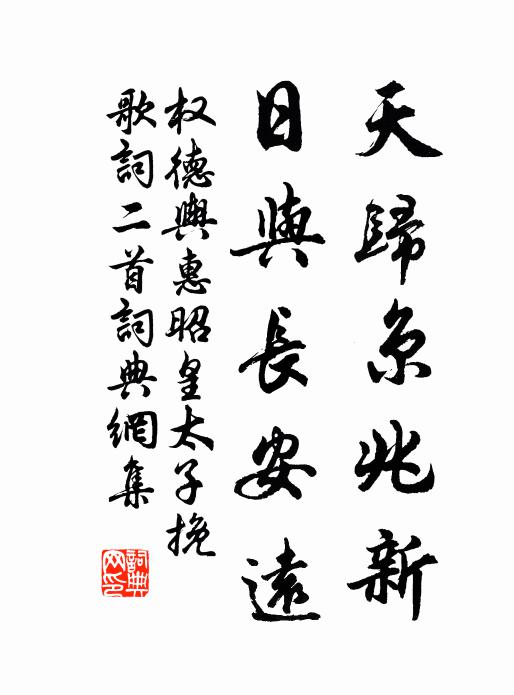 天歸京兆新
日與長安遠
权德輿惠昭皇太子挽
歌詞二首詞典網集
詞典
网印